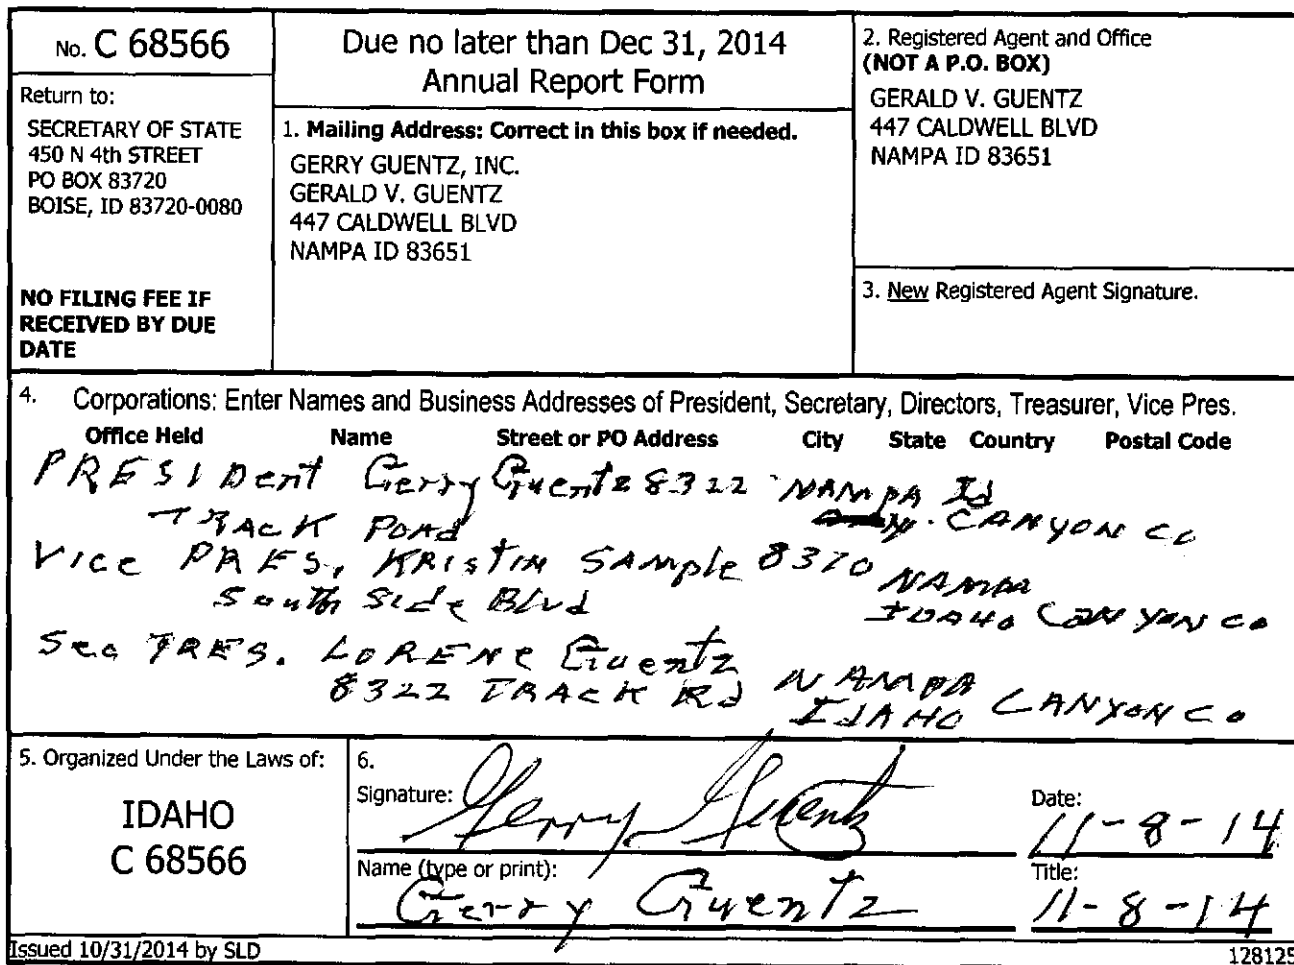 No. C 68566
Return to:
SECRETARY OF STATE
450 N 4th STREET
PO BOX 83720
BOISE, ID 83720-0080
NO FILING FEE IF
RECEIVED BY DUE
DATE
Due no later than Dec 31, 2014
Annual Report Form
1. Mailing Address: Correct in this box if needed.
GERRY GUENTZ, INC.
GERALD V. GUENTZ
447 CALDWELL BLVD
NAMPA ID 83651
2. Registered Agent and Office
(NOT A P.O. BOX)
GERALD V. GUENTZ
447 CALDWELL BLVD
NAMPA ID 83651
3. New Registered Agent Signature.
4. Corporations: Enter Names and Business Addresses of President, Secretary, Directors, Treasurer, Vice Pres.
Office Held Name Street or PO Address City State Country Postal Code
PRESIDent Gerry Guentz 8322 NAMPA Id
TRACK ROAd CANYON Co
Vice PRES, KRIstIN SAmple 8370 NAMPA
South Side Blvd IDAHo CANYON Co
Sec TRES. LORENE Guentz
8322 TRACK Rd NAMPA
IdAHO CANYON Co
5. Organized Under the Laws of:
IDAHO
C 68566
6.
Signature: Gerry Guentz
Date: 11-8-14
Name (type or print): Gerry Guentz
Title: 11-8-14
Issued 10/31/2014 by SLD
128125